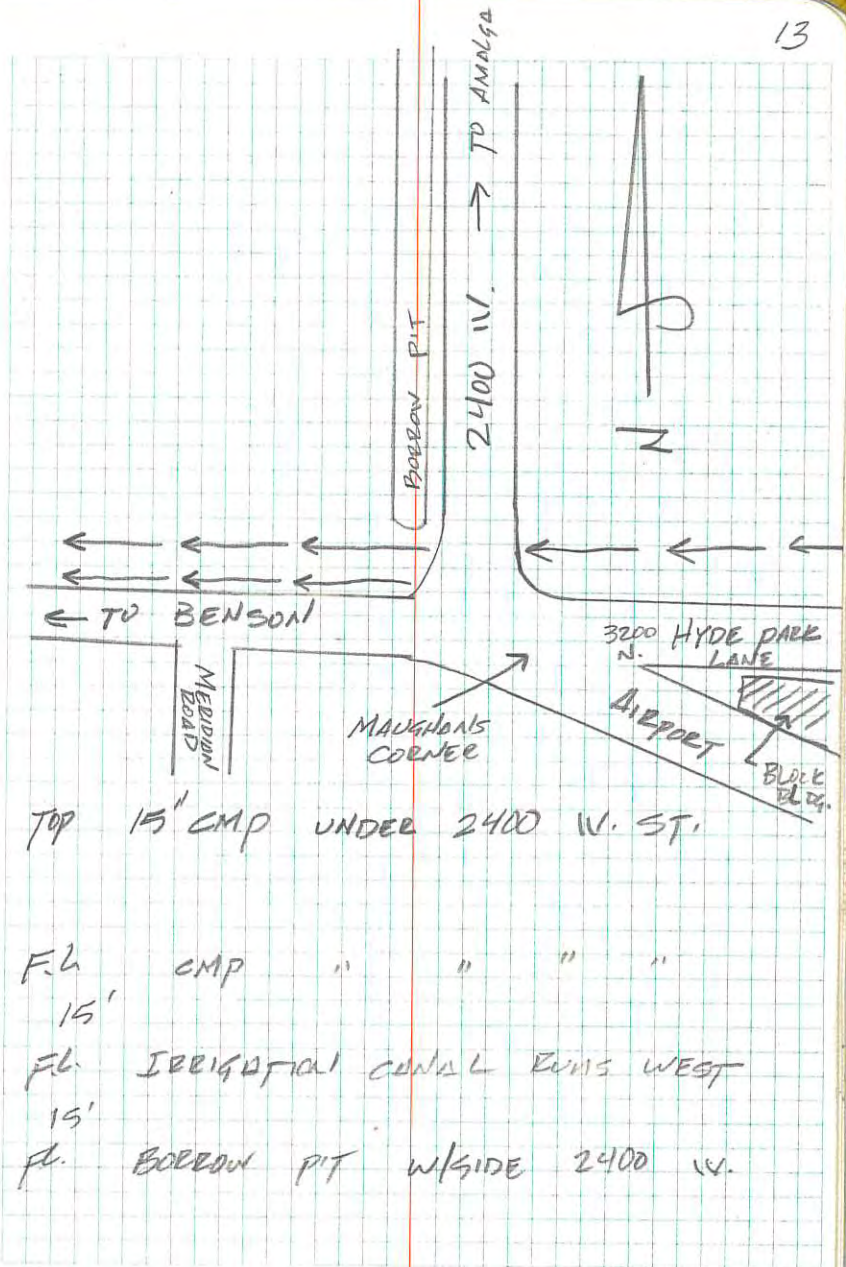 13
2400 W. → TO AMALGA
BORROW PIT
N
← TO BENSON
MERIDIAN
ROAD
MAUGHANS
CORNER
3200 HYDE PARK
N. LANE
AIRPORT
BLOCK
BLDG.
TOP 15" CMP UNDER 2400 W. ST.
F.L CMP " " " "
15'
FL. IRRIGATION CANAL RUNS WEST
15'
FL. BORROW PIT W/SIDE 2400 W.